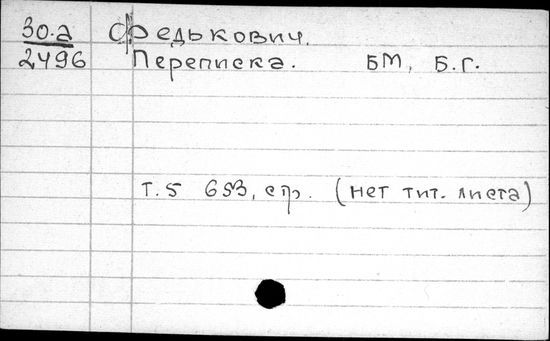 30.а Федькович.
2496 Переписка. БМ, Б.г.
т.5 653, стр. (нет тит. листа)